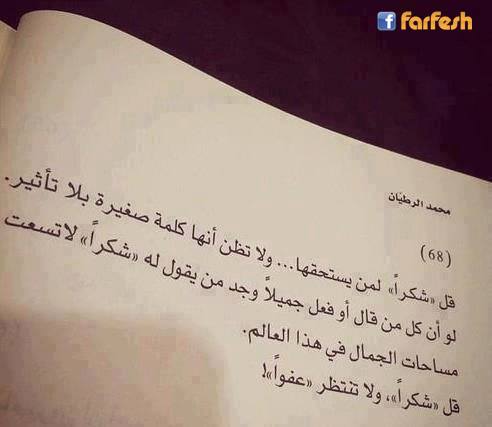 farfesh
محمد الرطيان
(68)
قل «شكراً» لمن يستحقها... ولا تظن أنها كلمة صغيرة بلا تأثير.
لو أن كل من قال أو فعل جميلاً وجد من يقول له «شكراً» لاتسعت
مساحات الجمال في هذا العالم.
قل «شكراً»، ولا تنتظر «عفواً»!